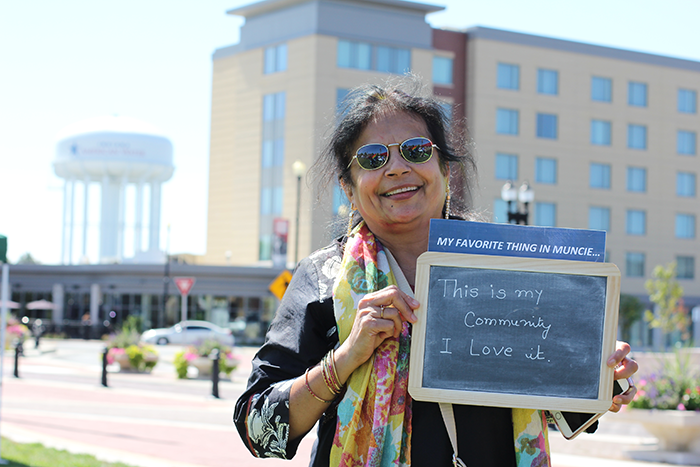 MY FAVORITE THING IN MUNCIE...
This is my
Community
I Love it.